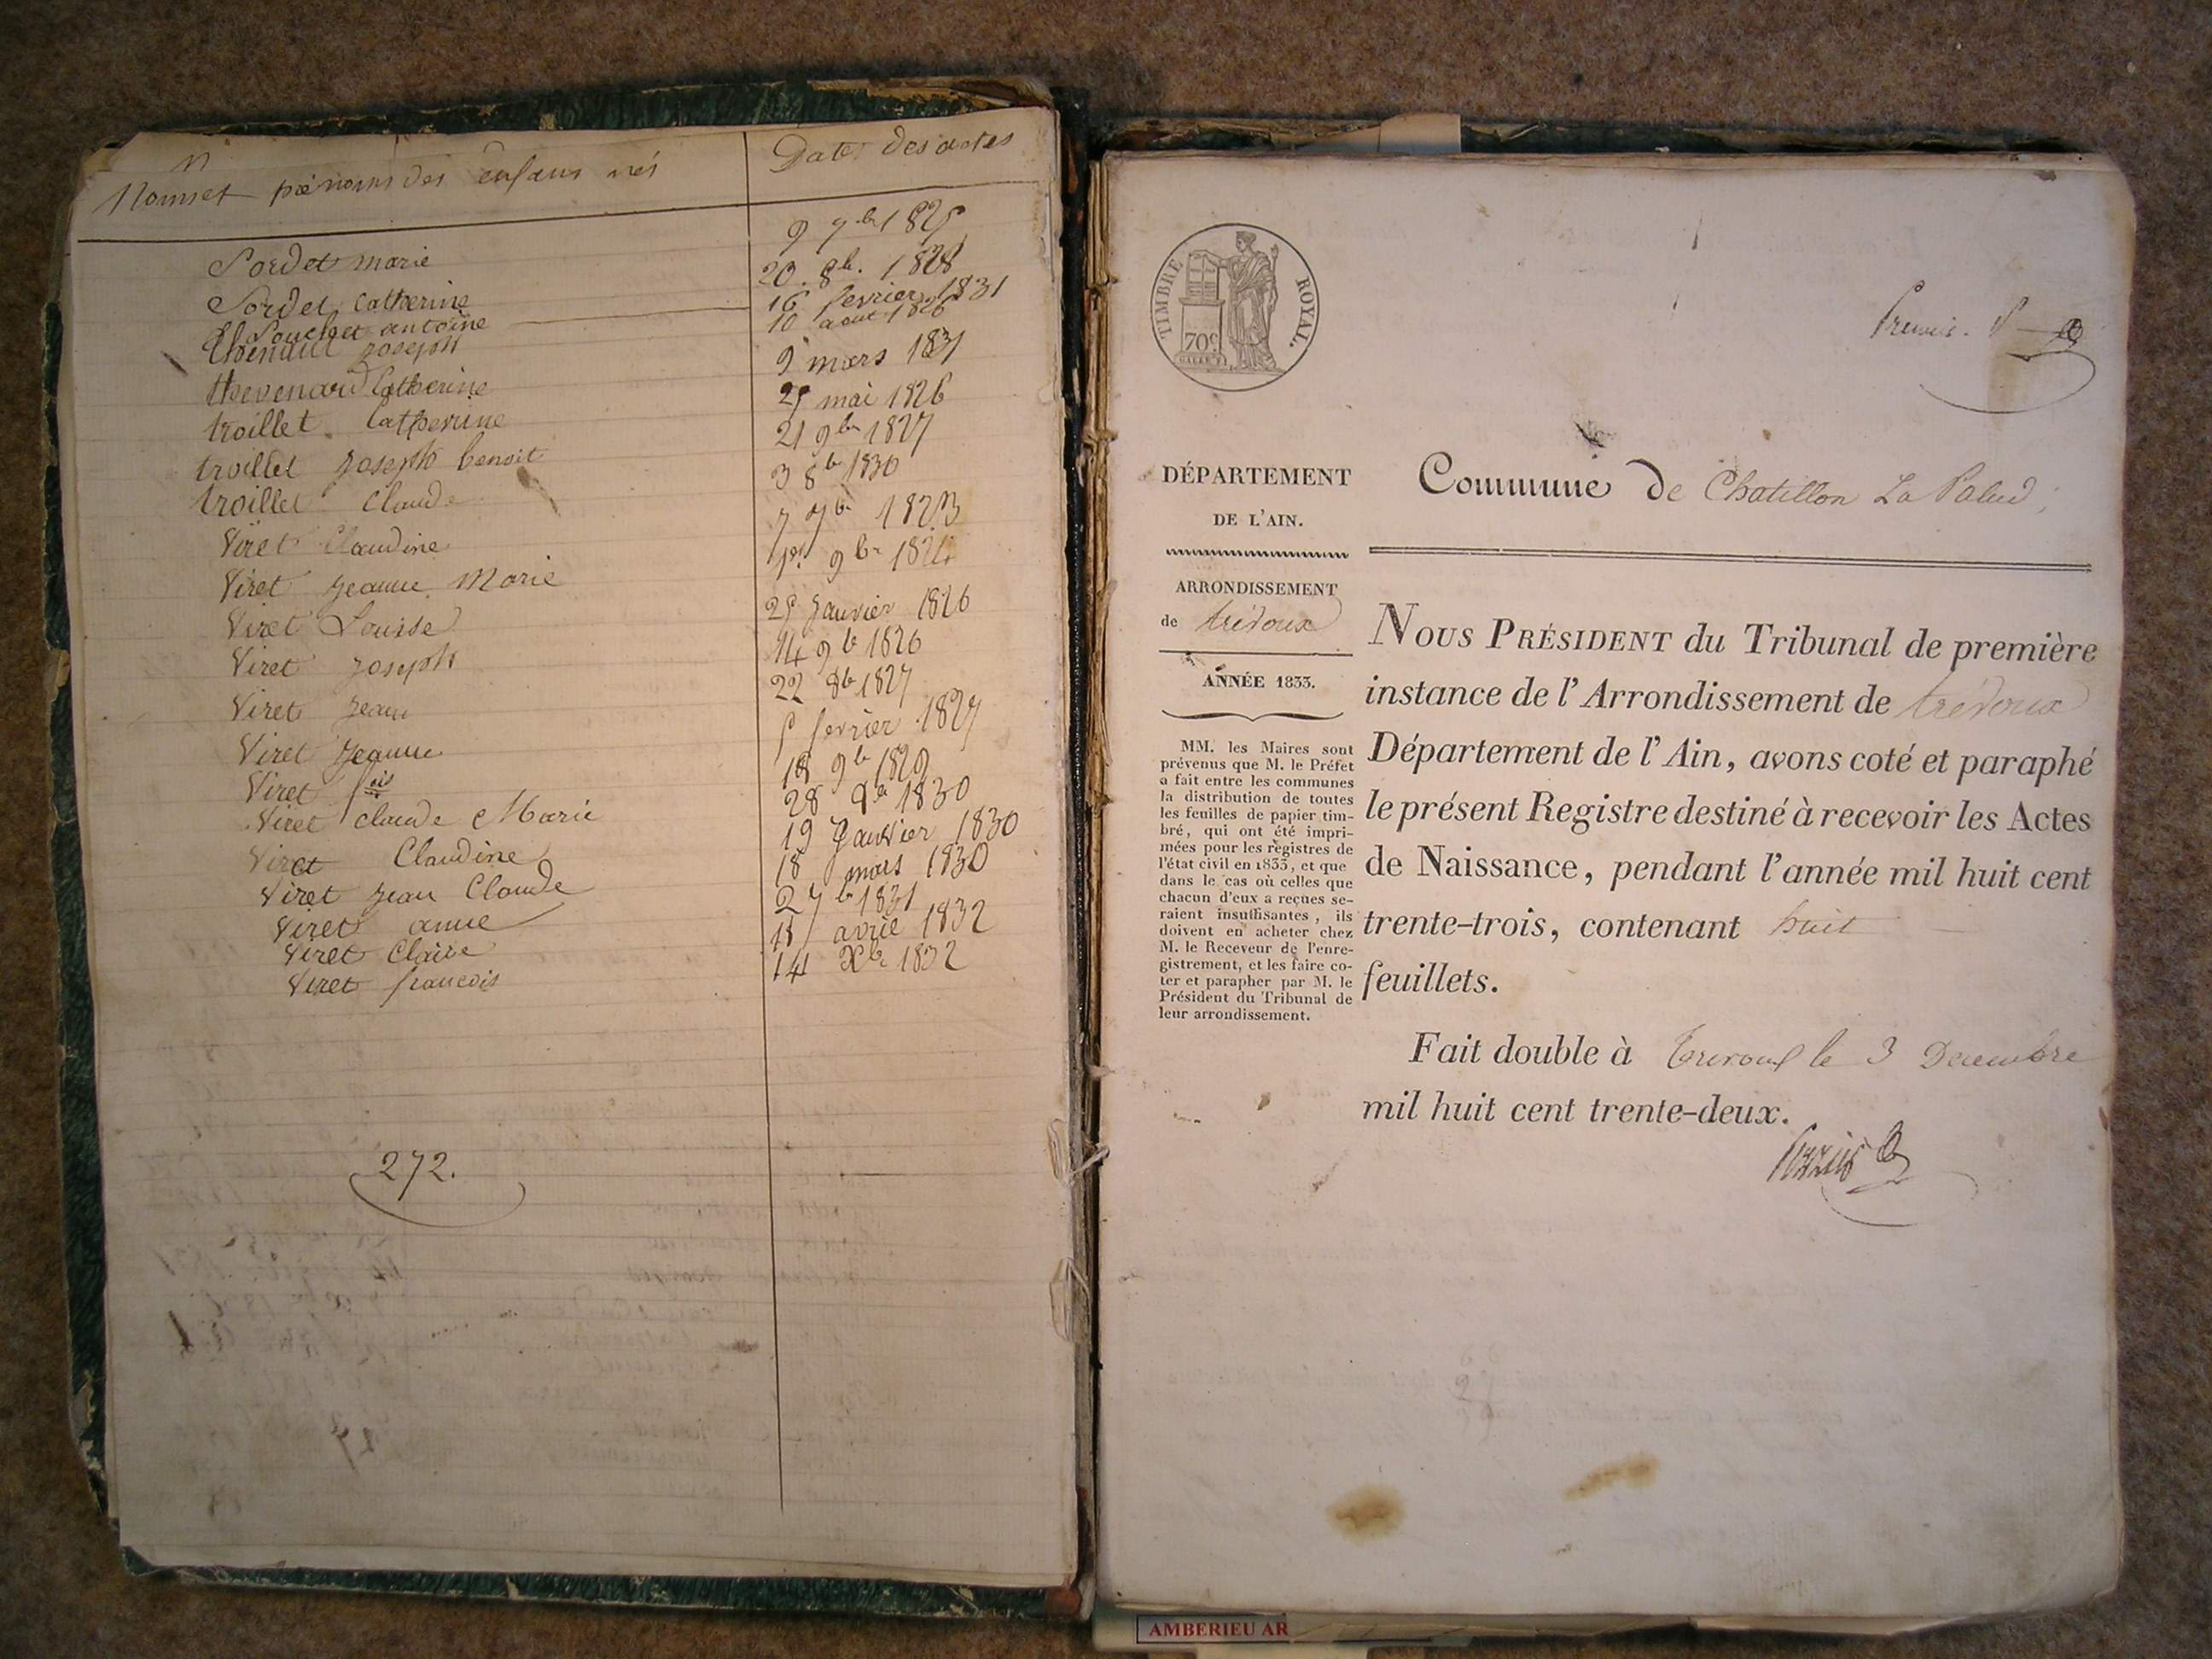 Noms et prénoms des enfans nés
Date des actes
Sordet marie
9 7bre 1825
Sordet Catherine
20. 8b. 1828
Souchet antoine
16 fevrier 1831
Joseph
10 aout 1826
thevenard Catherine
9 mars 1831
troillet Catherine
25 mai 1826
troillet Joseph benoit
21 9bre 1827
troillet Claude
3 8b 1830
Viret Claudine
7 7bre 1823
Viret Jeanne Marie
1er 9bre 1824
Viret Louise
25 Janvier 1826
Viret Joseph
14 9b 1826
Viret Jean
22 8b 1827
Viret Jeanne
5 fevrier 1827
Viret fois
18 9b 1829
Viret Claude Marie
28 1830
Viret Claudine
19 Janvier 1830
Viret Jean Claude
18 mars 1830
Viret anne
2 7b 1831
Viret Claire
18 avril 1832
Viret francois
14 Xbre 1832
272.
TIMBRE ROYAL.
70c
Premier.
DÉPARTEMENT
DE L'AIN.
Commune de Chatillon La Palud
ARRONDISSEMENT
de trévoux
ANNÉE 1833.
MM. les Maires sont
prévenus que M. le Préfet
a fait entre les communes
la distribution de toutes
les feuilles de papier tim-
bré, qui ont été impri-
mées pour les registres de
l'état civil en 1833, et que
dans le cas où celles que
chacun d'eux a reçues se-
raient insuffisantes, ils
doivent en acheter chez
M. le Receveur de l'enre-
gistrement, et les faire co-
ter et parapher par M. le
Président du Tribunal de
leur arrondissement.
NOUS PRÉSIDENT du Tribunal de première
instance de l'Arrondissement de trévoux
Département de l'Ain, avons coté et paraphé
le présent Registre destiné à recevoir les Actes
de Naissance, pendant l'année mil huit cent
trente-trois, contenant huit
feuillets.
Fait double à Trevoux le 3 Decembre
mil huit cent trente-deux.
AMBERIEU AR